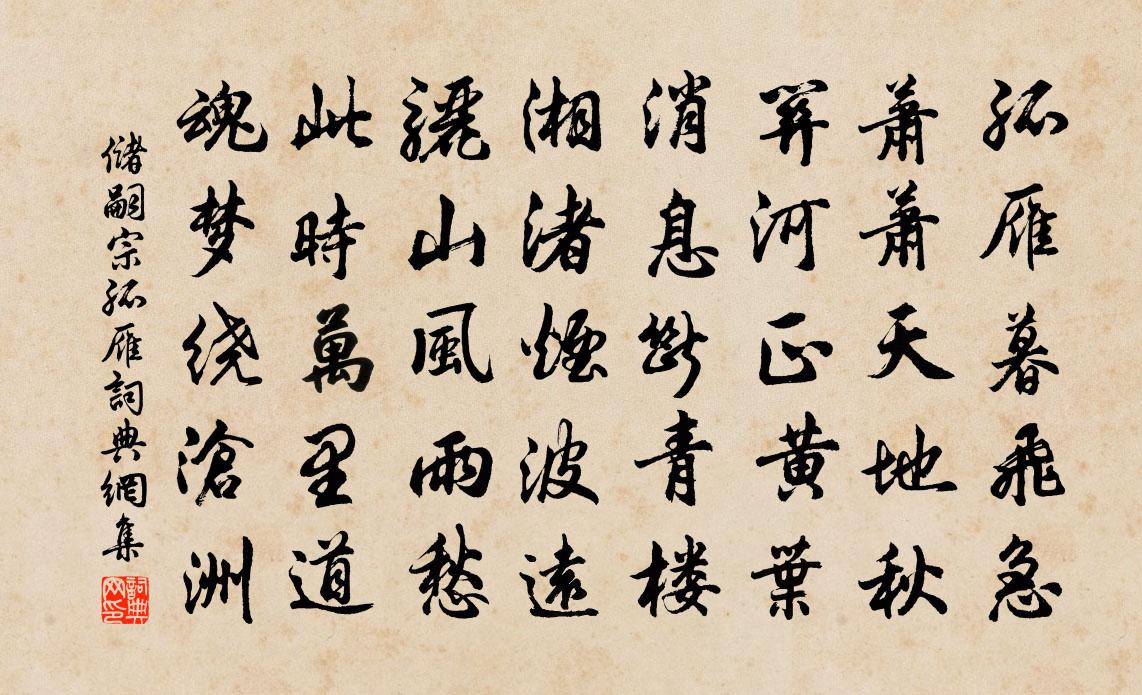 孤雁暮飛急
蕭蕭天地秋
關河正黃葉
消息斷青楼
湘渚煙波遠
驪山風雨愁
此時萬里道
魂梦绕滄洲
儲嗣宗孤雁詞典網集
詞典网印